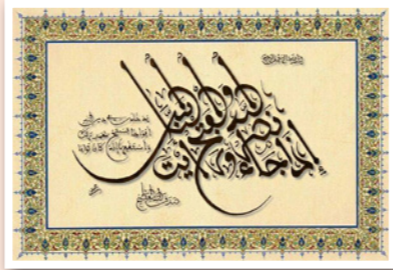 بسم الله الرحمن الرحيم
إذا جاء نصر الله والفتح ورأيت الناس
يدخلون في دين الله
أفواجا فسبح بحمد ربك
واستغفره إنه كان توابا
صدق الله العظيم